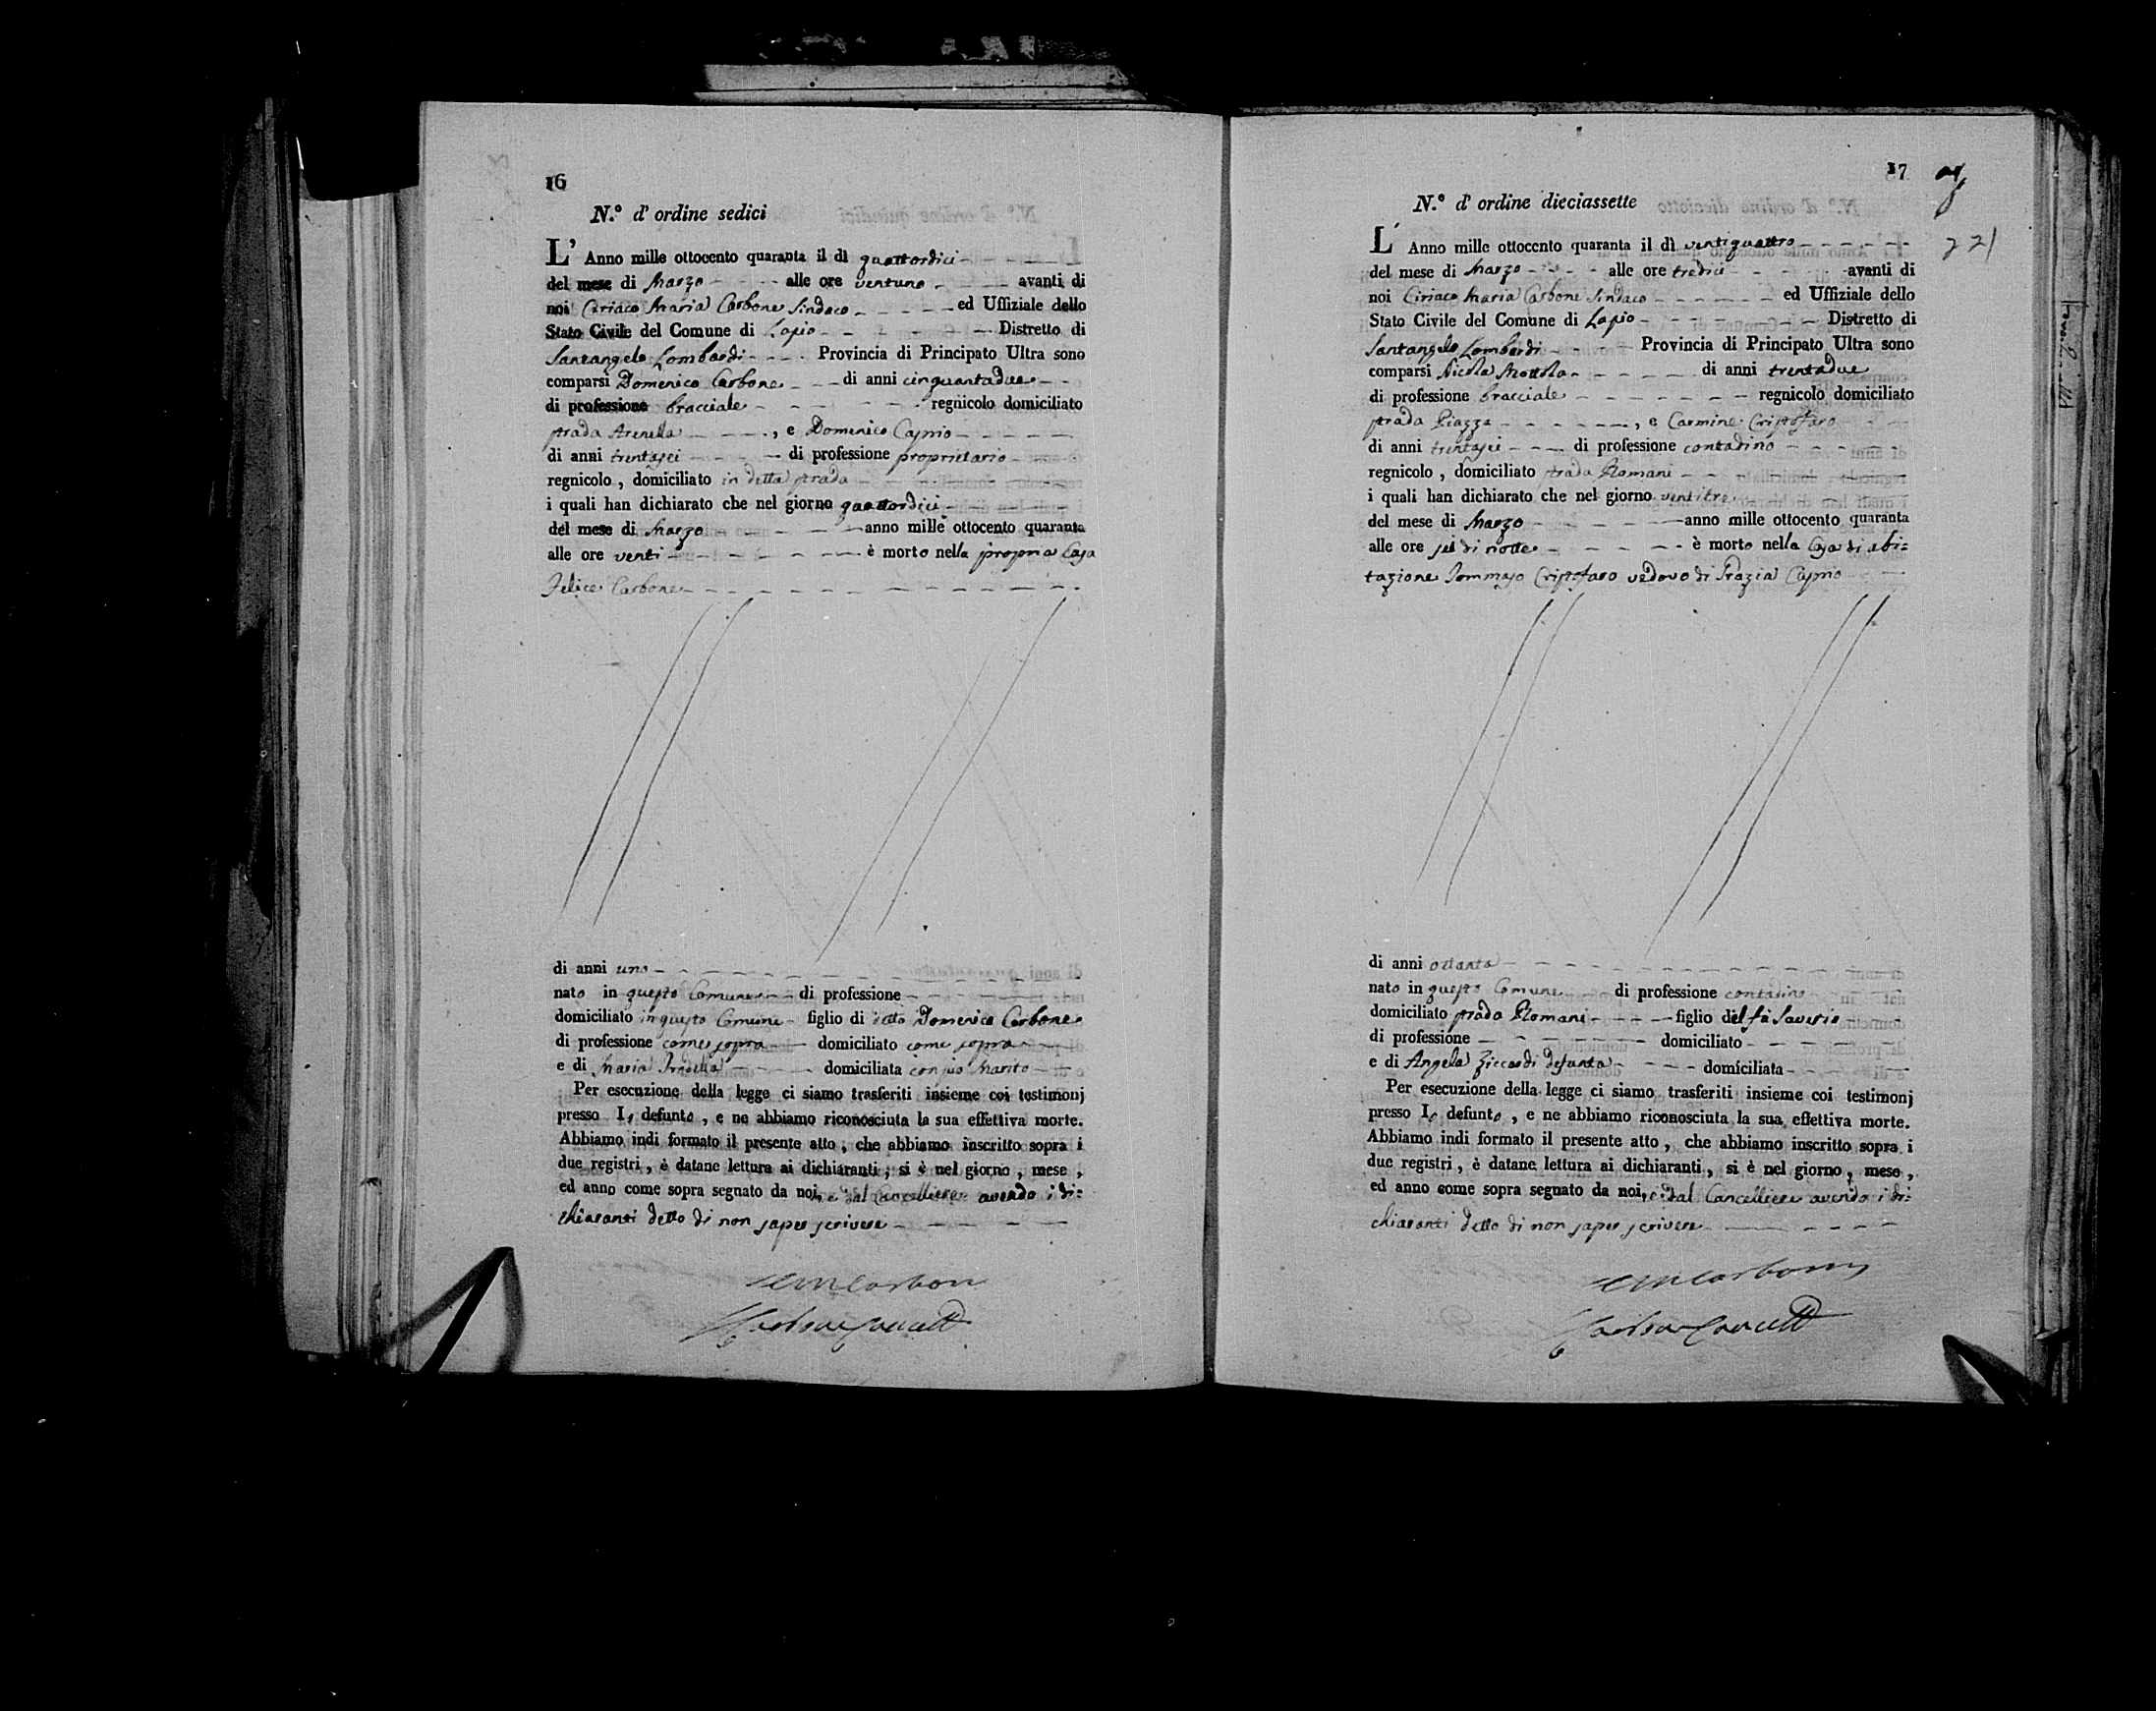 16
N.° d' ordine sedici
L' Anno mille ottocento quaranta il dì quattordici
del mese di Marzo alle ore ventuno avanti di
noi Ciriaco Maria Carbone Sindaco ed Uffiziale dello
Stato Civile del Comune di Lapio Distretto di
Santangelo Lombardi Provincia di Principato Ultra sono
comparsi Domenico Carbone di anni cinquantadue
di professione bracciale regnicolo domiciliato
strada Arenella , e Domenico Caprio
di anni trentasei di professione proprietario
regnicolo, domiciliato in detta strada
i quali han dichiarato che nel giorno quattordici
del mese di Marzo anno mille ottocento quaranta
alle ore venti è morto nella propria Casa
Felice Carbone
di anni uno
nato in questo Comune di professione
domiciliato in questo Comune figlio di detto Domenico Carbone
di professione come sopra domiciliato come sopra
e di Maria domiciliata con suo Marito
Per esecuzione della legge ci siamo trasferiti insieme coi testimonj
presso Lo defunto, e ne abbiamo riconosciuta la sua effettiva morte.
Abbiamo indi formato il presente atto, che abbiamo inscritto sopra i
due registri, è datane lettura ai dichiaranti, si è nel giorno, mese,
ed anno come sopra segnato da noi, e dal Cancelliere avendo i di=
chiaranti detto di non saper scrivere
CMCarbone
17
N.° d' ordine dieciassette
221
L' Anno mille ottocento quaranta il dì ventiquattro
del mese di Marzo alle ore tredici avanti di
noi Ciriaco Maria Carbone Sindaco ed Uffiziale dello
Stato Civile del Comune di Lapio Distretto di
Santangelo Lombardi Provincia di Principato Ultra sono
comparsi Nicola Mottola di anni trentadue
di professione bracciale regnicolo domiciliato
strada Piazza , e Carmine Cristofaro
di anni trentasei di professione contadino
regnicolo, domiciliato strada Romani
i quali han dichiarato che nel giorno ventitre
del mese di Marzo anno mille ottocento quaranta
alle ore sei di notte è morto nella Casa di abi=
tazione Tommaso Cristofaro vedovo di Grazia Caprio
di anni ottanta
nato in questo Comune di professione contadino
domiciliato strada Romani figlio del fù Saverio
di professione domiciliato
e di Angela Ziccardi defunta domiciliata
Per esecuzione della legge ci siamo trasferiti insieme coi testimonj
presso Lo defunto, e ne abbiamo riconosciuta la sua effettiva morte.
Abbiamo indi formato il presente atto, che abbiamo inscritto sopra i
due registri, è datane lettura ai dichiaranti, si è nel giorno, mese,
ed anno come sopra segnato da noi, e dal Cancelliere avendo i di=
chiaranti detto di non saper scrivere
CMCarbone